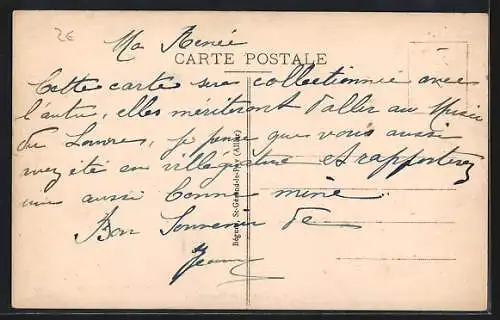 2€
Ma Renée
CARTE POSTALE
Cette carte sera collectionnée avec
l'autre, elles méritent d'aller au Musée
du Louvre, je pense que vous aussi
avez été en villégiature et rapporterez
une aussi bonne mine
Bon Souvenir de
Jeanne
Bégnon, St-Gérand-le-Puy (Allier)